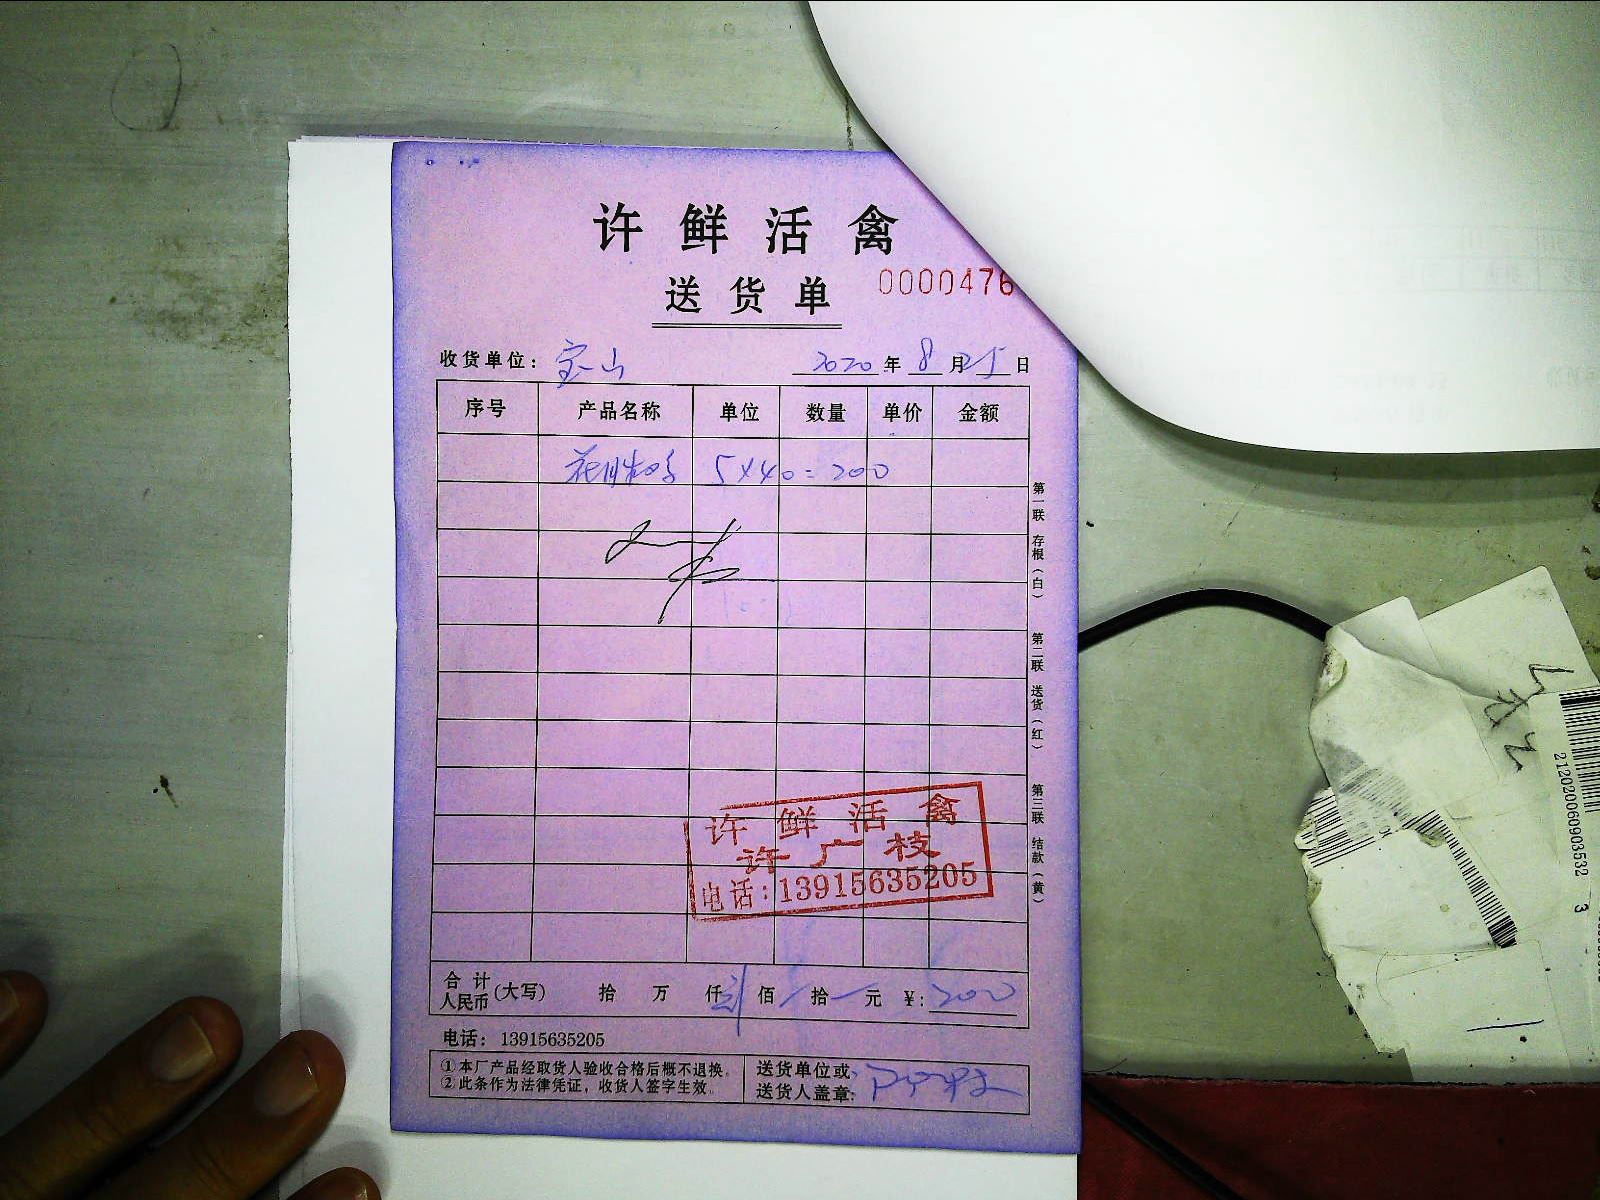 许鲜活禽
送货单
0000476
收货单位： 宝山 2020 年 8 月 25 日
序号 产品名称 单位 数量 单价 金额
5×40=200
第一联 存根（白）
第二联 送货（红）
第三联 结款（黄）
许鲜活禽
许广枝
电话：13915635205
合计
人民币 (大写) 拾 万 仟 贰 佰 拾 元 ¥: 200
电话： 13915635205
①本厂产品经取货人验收合格后概不退换。
②此条作为法律凭证，收货人签字生效。
送货单位或
送货人盖章:
212020060903532 3